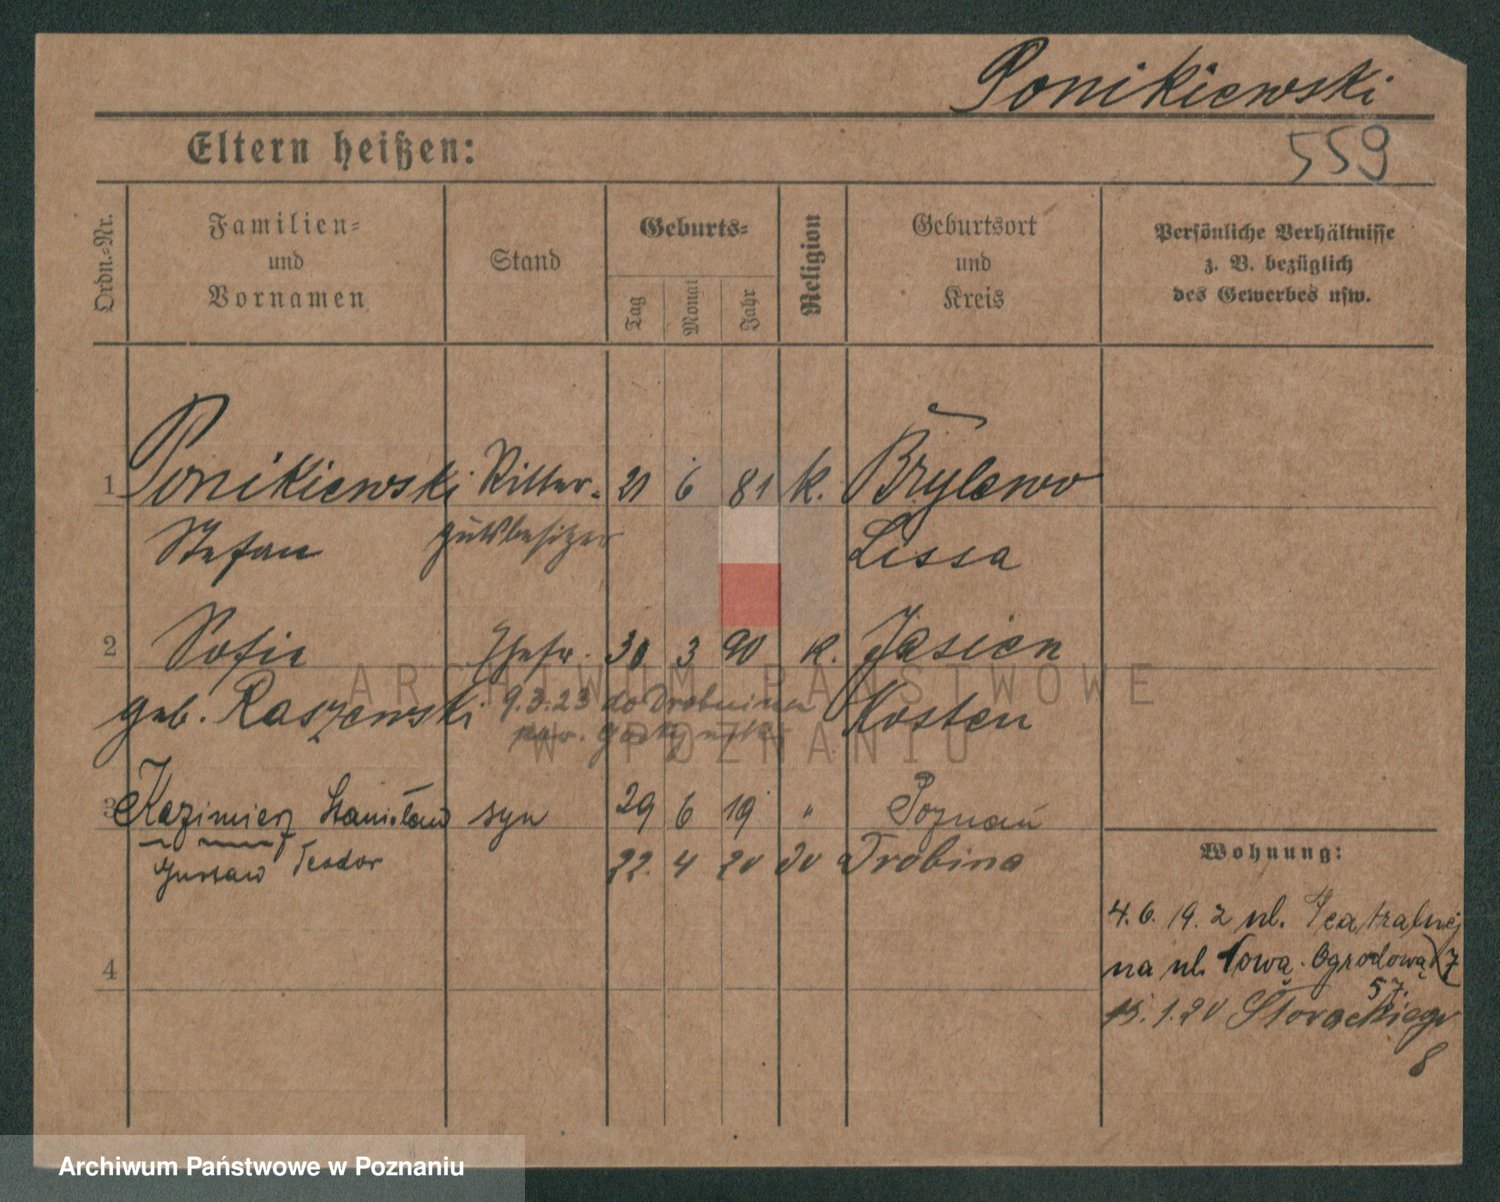 Ponikiewski
559
Eltern heißen:
Ordn.-Nr.
Familien-
und
Vornamen
Stand
Geburts-
Tag
Monat
Jahr
Religion
Geburtsort
und
Kreis
Persönliche Verhältnisse
z. B. bezüglich
des Gewerbes usw.
1 Ponikiewski Ritter- 21 6 81 k. Brylewo
Stefan gutsbesitzer Lissa
2 Sofie Ehefr. 30 3 90 k. Jasien
geb. Raszewski 9.3.23 do Drobnina Kosten
pow.
3 Kazimierz Stanisław syn 29 6 19 " Poznań
Gustaw Teodor 22. 4 20 Drobina
Wohnung:
4.6.19. z ul. Teatralnej
na ul. Ogrodową 7
57.
15.1.20
8
4
ARCHIWUM PAŃSTWOWE
W POZNANIU
Archiwum Państwowe w Poznaniu